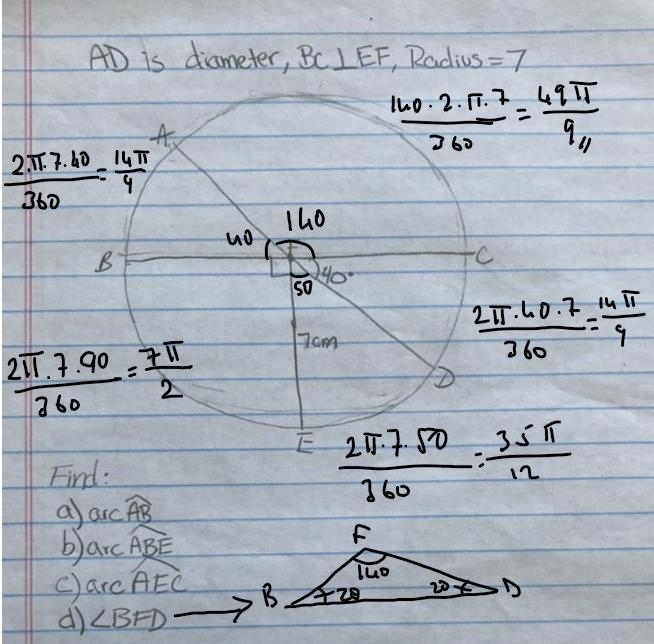 AD is diameter, BC ⊥ EF, Radius = 7
140 · 2 · π · 7 / 360 = 49π / 9
A
2 · π · 7 · 40 / 360 = 14π / 9
140
40
B
F
C
40°
50
2π · 40 · 7 / 360 = 14π / 9
7cm
2π · 7 · 90 / 360 = 7π / 2
D
E
2π · 7 · 50 / 360 = 35π / 12
Find:
a) arc AB
b) arc ABE
c) arc AEC
d) ∠BFD →
F
140
B
20
20
D